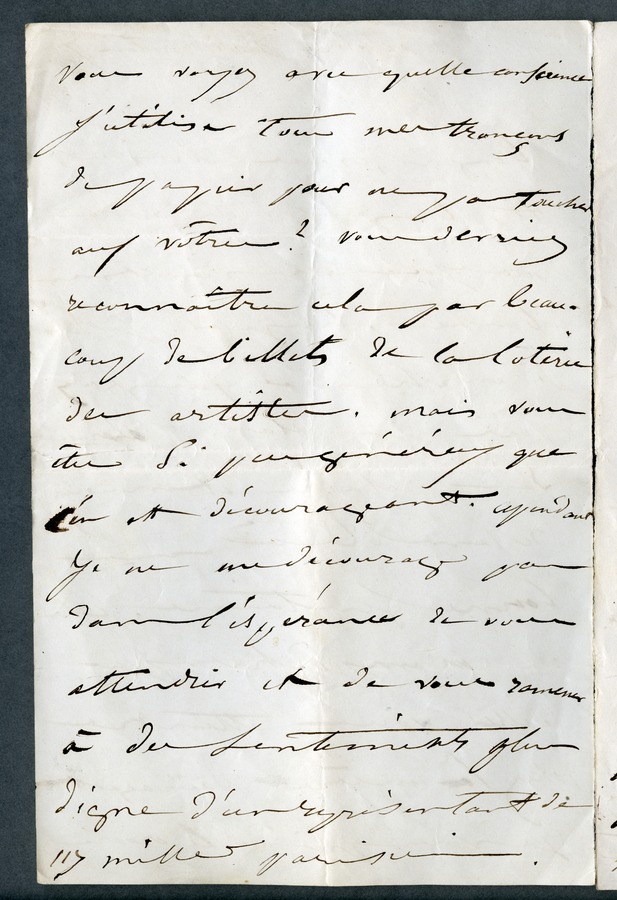 vous voyez avec quelle conscience
j'utilise tous mes tronçons
de papier pour ne pas toucher
aux vôtres? vous devriez
reconnaître cela par beau-
coup de billets de la loterie
des artistes. mais vous
êtes si peu généreux que
c'en est décourageant. cependant
je ne me décourage pas
dans l'espérance de vous
attendrir et de vous ramener
à des sentiments plus
digne d'un représentant de
117 milles parisiens.